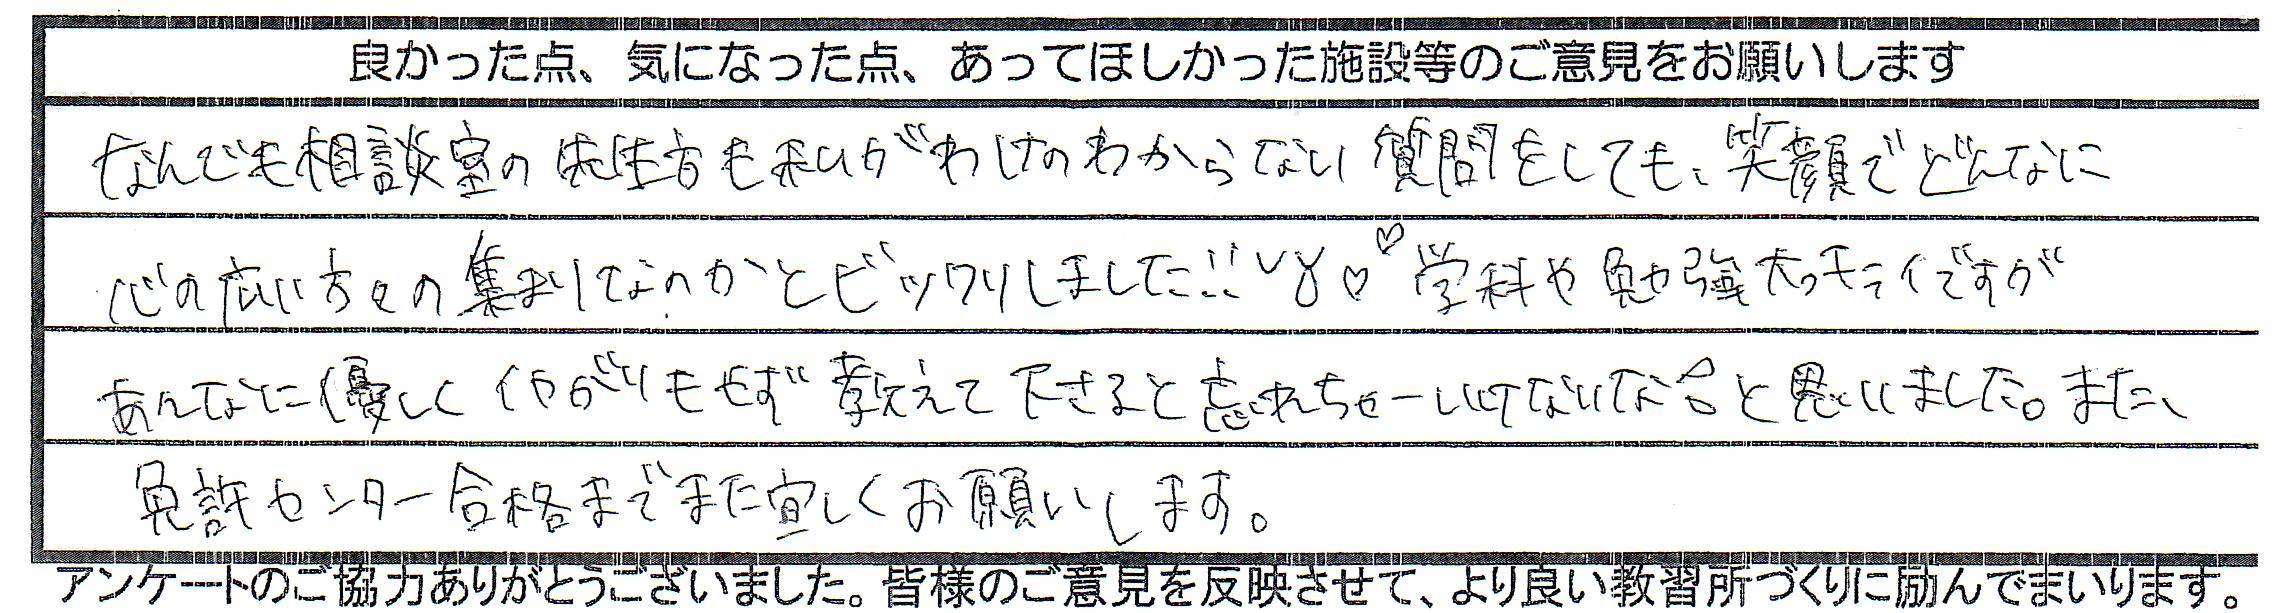 良かった点、気になった点、あってほしかった施設等のご意見をお願いします
なんでも相談室の先生方も私がわけのわからない質問をしても、笑顔でどんなに
心の広い方々の集まりなのかとビックリしました!! 学科や勉強大っキライですが
あんなに優しくイヤがりもせず教えて下さると忘れちゃーいけないな と思いました。また、
免許センター合格までまた宜しくお願いします。
アンケートのご協力ありがとうございました。皆様のご意見を反映させて、より良い教習所づくりに励んでまいります。